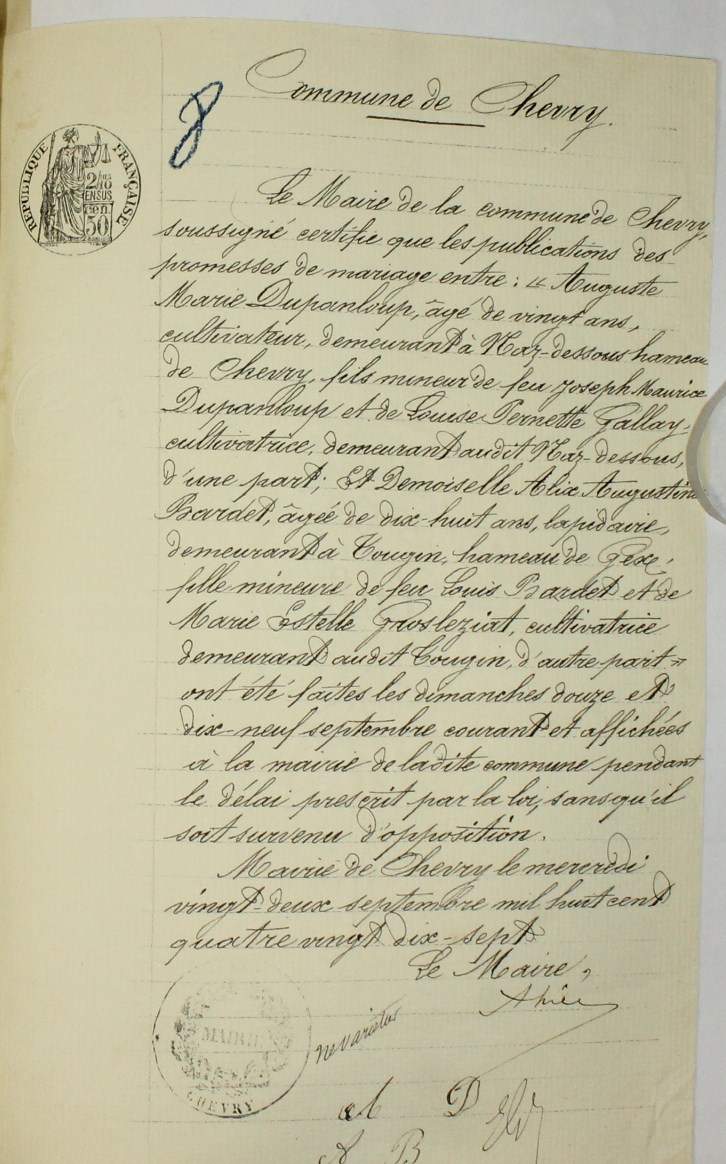 Commune de Chevry.
RÉPUBLIQUE FRANÇAISE
2/10es
EN SUS
50
Le Maire de la commune de Chevry,
soussigné certifie que les publications des
promesses de mariage entre : " Auguste
Marie Dupanloup, âgé de vingt ans,
cultivateur, demeurant à Naz-dessous hameau
de Chevry, fils mineur de feu Joseph Maurice
Dupanloup et de Louise Pernette Gallay,
cultivatrice, demeurant audit Naz-dessous,
d'une part; Et Demoiselle Alix Augustine
Bardet, âgée de dix-huit ans, lapidaire,
demeurant à Tougin, hameau de Gex,
fille mineure de feu Louis Bardet et de
Marie Estelle Grosleziat, cultivatrice
demeurant audit Tougin, d'autre part "
ont été faites les dimanches douze et
dix-neuf septembre courant et affichées
à la mairie de ladite commune pendant
le délai prescrit par la loi, sans qu'il
soit survenu d'opposition.
Mairie de Chevry le mercredi
vingt-deux septembre mil huit cent
quatre vingt dix-sept
Le Maire,
MAIRIE
CHEVRY
ne varietur
A B